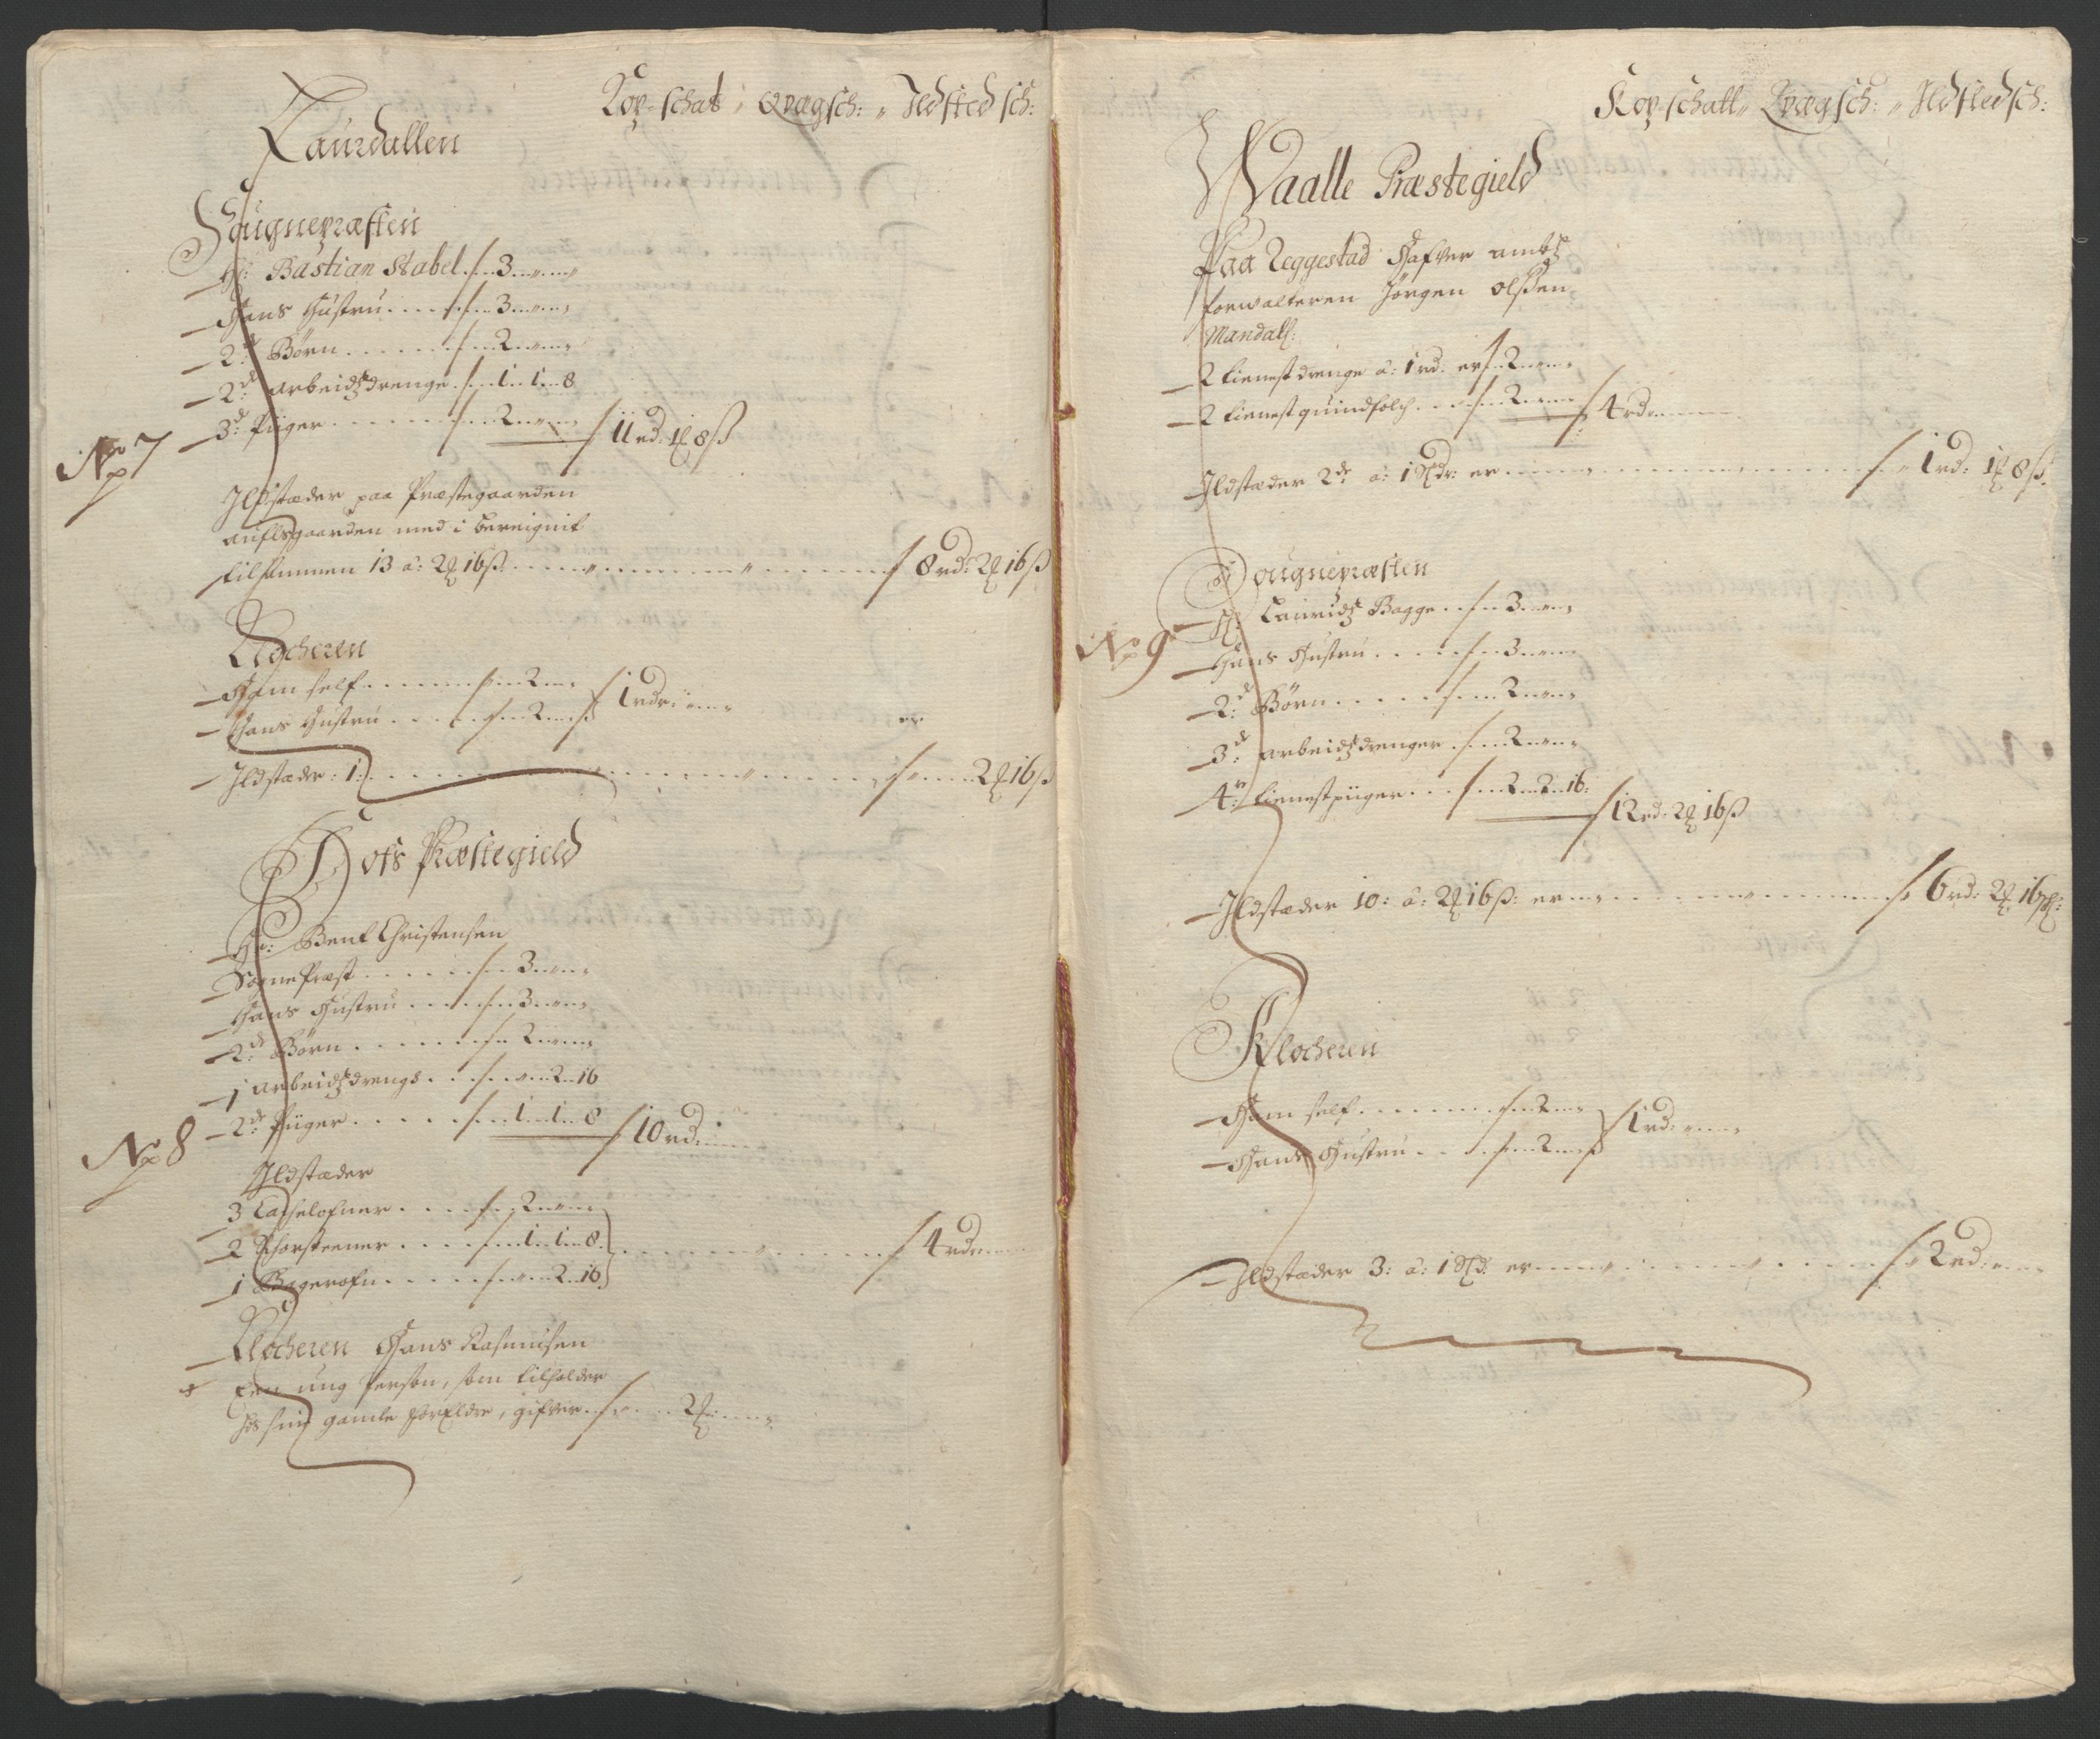 Kop-schat, Qvægsch: „ Ildstedsch:
Laurdallen
Sougnepræsten
Hr: Bastian Stabel ./. 3
Hans Hustru ./. 3
2de Børn ./. 2
2de arbeidsdrenge ./. 1. 1. 8
3de Piiger ./. 2
/ 11 rd. 1 8 ß
No 7
Ildstæder paa Præstegaarden
auflsgaarden med i bereignit
tilsammen 13 a: 2 16 ß / 8 rd: 2 16 ß
Klocheren
Ham self / 2
Hans Hustru / 2
/ 1 rdr:
Ildstæder: 1: er / 2 16 ß
Tots Præstegield
Hr: Bent Christensen
Sogne Præst / 3
Hans Hustru / 3
2de Børn / 2
1 arbeidsdreng / 2 16
2de Piiger / 1. 1. 8
/ 10 rd:
No 8
Ildstæder
3 Kachelofner / 2
2 Schorsteener / 1. 1. 8
1 Bagerofn / 2. 16
/ 4 rdr
Klocheren Hans Rasmusen
Een ung Person, som tilholder
hos sine gamle Forældre, gifver / 2
Kop-schatt „ Qvægsch: „ Ildstedsch:
Waalle Præstegield
Paa Reggestad Hafver ambts
forwalteren Jörgen Olssen
Mandall:
2 tienestdrenge a: 1 rd: er / 2
2 tienestquindfolch / 2
/ 4 rd
Ildstæder 2de a: 1 er / 1 rd: 1 8 ß
Sougnepræsten
Hr: Lauridz Bagge / 3
Hans Hustru / 3
No 9
2de Børn / 2
3de arbeidsdrenger / 2
4re tienestpiiger / 2. 2. 16:
/ 12 rd: 2 16 ß
Ildstæder 10: a: 2 16 ß: er / 6 rd: 2 16 ß:
Klocheren
Ham self / 2
Hans Hustru / 2
/ 1 rd:
Ildstæder 3: a: 1 er / 2 rd: